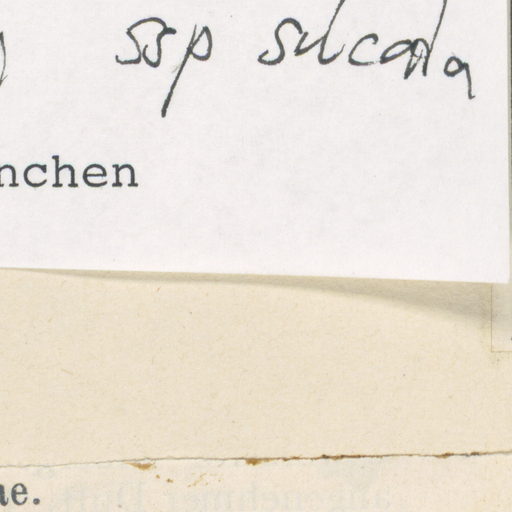 ssp sulcata
nchen
ae.